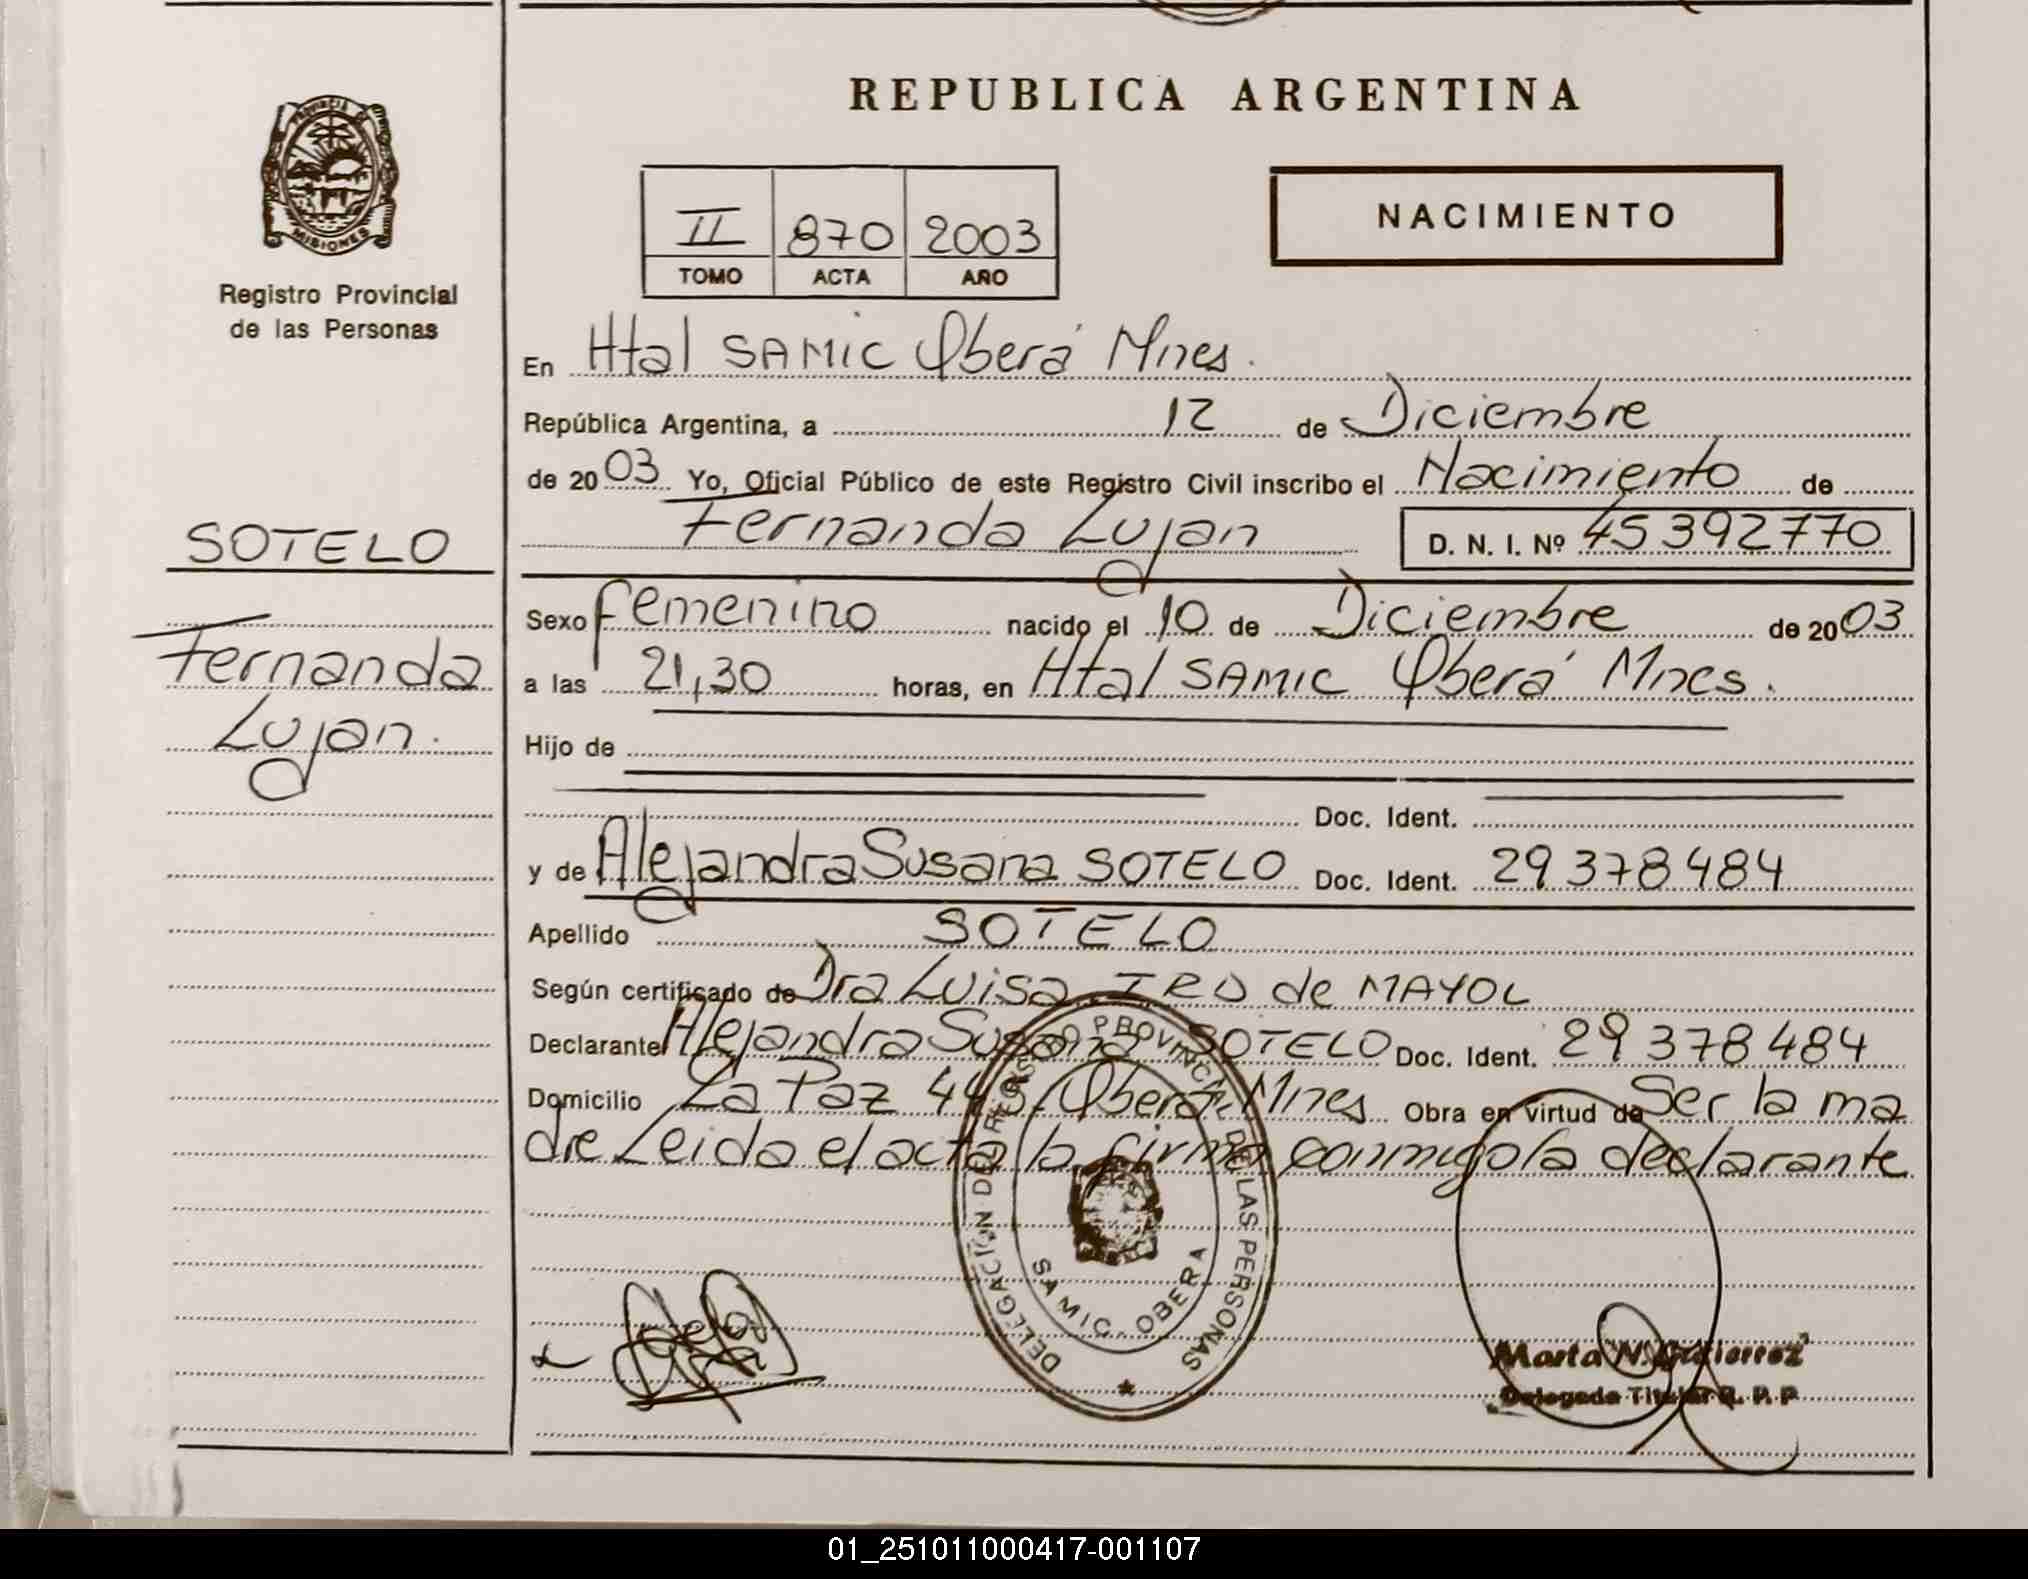 REPUBLICA ARGENTINA
PROVINCIA DE
MISIONES
Registro Provincial
de las Personas
II 870 2003
TOMO ACTA AÑO
NACIMIENTO
En Htal SAMIC Oberá Mnes.
República Argentina, a 12 de Diciembre
de 2003 Yo, Oficial Público de este Registro Civil inscribo el Nacimiento de
Fernanda Lujan D. N. I. Nº 45392770
SOTELO
Fernanda
Lujan.
Sexo Femenino nacido el 10 de Diciembre de 2003
a las 21,30 horas, en Htal SAMIC Oberá Mnes.
Hijo de
Doc. Ident.
y de Alejandra Susana SOTELO Doc. Ident. 29378484
Apellido SOTELO
Según certificado de Dra Luisa de MAYOL
Declarante Alejandra Susana SOTELO Doc. Ident. 29378484
Domicilio La Paz Oberá Mnes Obra en virtud de Ser la ma
dre Leida el acta la firma conmigo la declarante
DELEGACION DEL REGISTRO PROVINCIAL DE LAS PERSONAS
SAMIC - OBERA
Marta N. Gutierrez
Delegada Titular R. P. P
01_251011000417-001107